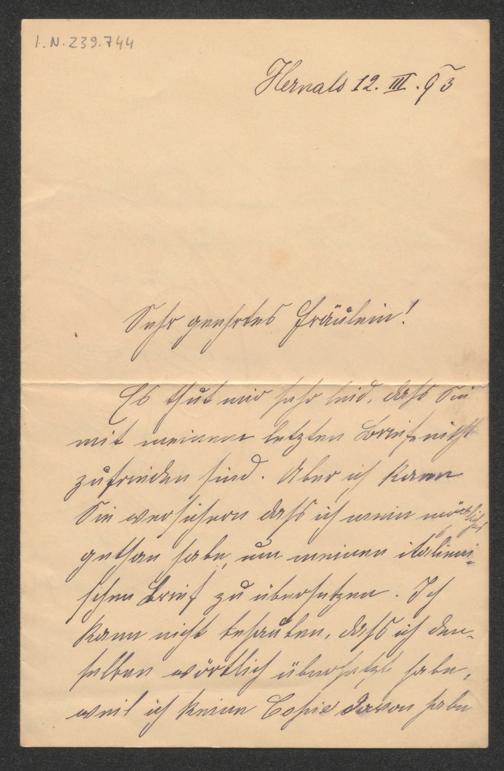 I.N. 239.744
Hernals 12. III. 93
Sehr geehrtes Fräulein!
Es thut mir sehr leid, daß Sie
mit meinem letzten Brief nicht
zufrieden sind. Aber ich kann
Sie versichern daß ich mein möglichstes
gethan habe, um meinen italieni-
schen Brief zu übersetzen. Ich
kann nicht behaupten, daß ich den-
selben wörtlich übersetzt habe,
weil ich keine Copie davon habe